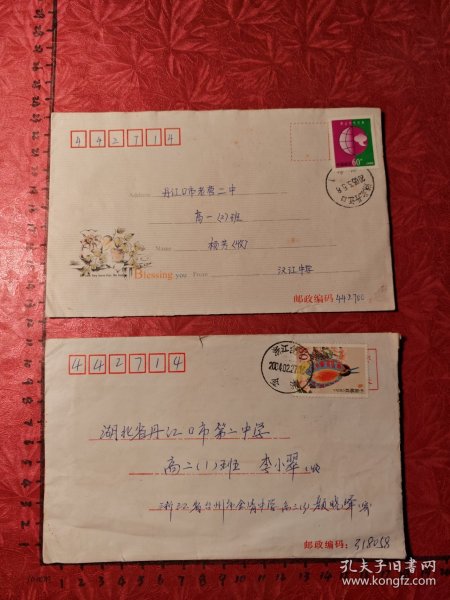 442714
60分
Address 丹江口市老营二中
高一(2)班
Name 杨芳(收)
Blessing you From 汉江中学
邮政编码 442700
442714
浙江
2004.02.27
湖北省丹江口市第二中学
高二(1)班 李小翠 收
浙江省台州市金清中学高二(3)颜晓军
邮政编码: 318058
孔夫子旧书网
www.kongfz.com